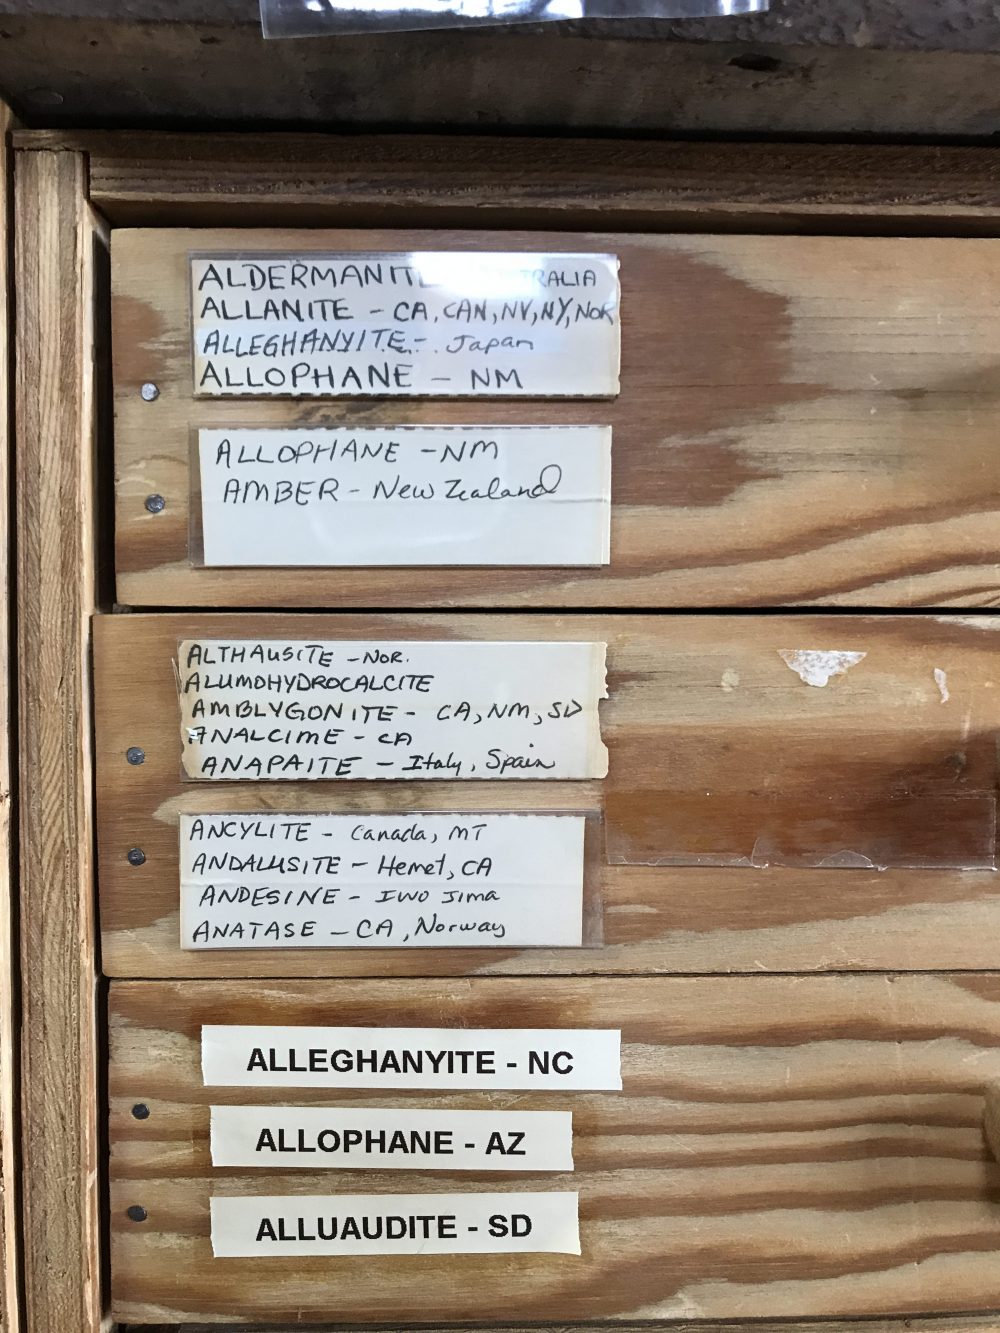 ALDERMANITE TRALIA
ALLANITE - CA, CAN, NV, NY, NOR
ALLEGHANYITE - Japan
ALLOPHANE - NM
ALLOPHANE - NM
AMBER - New Zealand
ALTHAUSITE - NOR.
ALUMOHYDROCALCITE
AMBLYGONITE - CA, NM, SD
ANALCIME - CA
ANAPAITE - Italy, Spain
ANCYLITE - Canada, MT
ANDALUSITE - Hemet, CA
ANDESINE - IWO Jima
ANATASE - CA, Norway
ALLEGHANYITE - NC
ALLOPHANE - AZ
ALLUAUDITE - SD